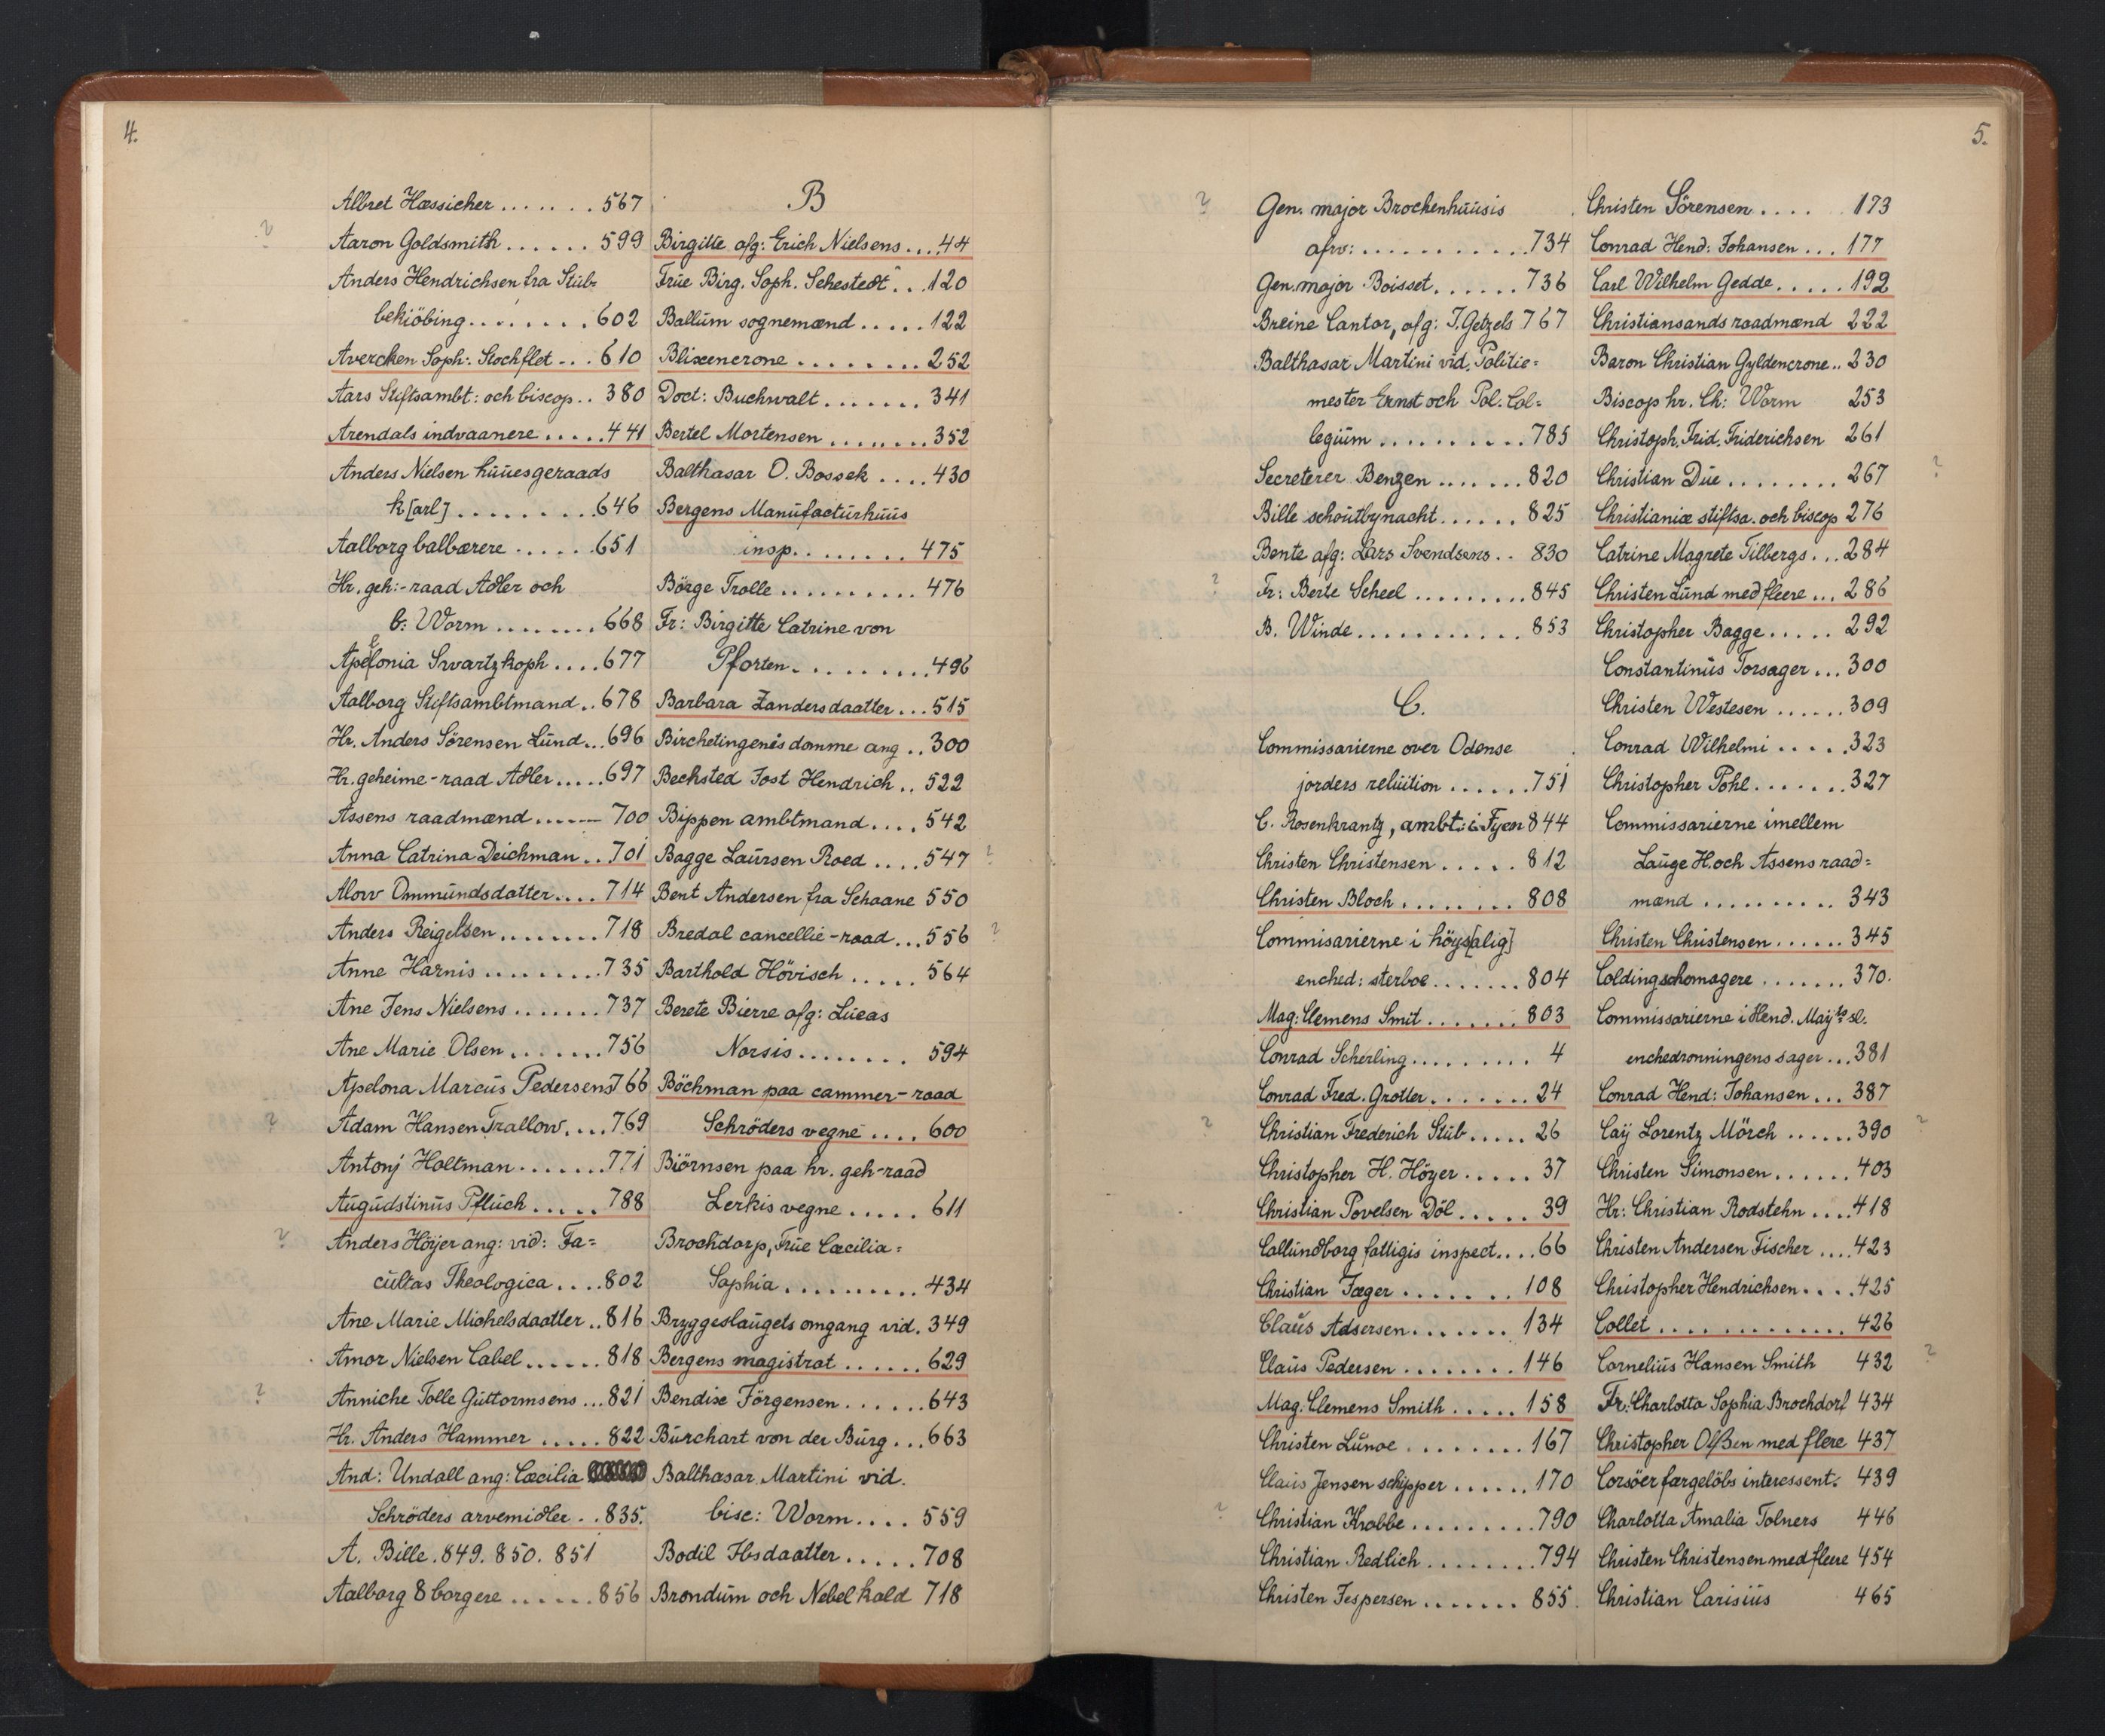 4.
Albret Hæssicher ....... 567
? Aaron Goldsmith ...... 599
Anders Hendrichsen fra Stub=
bekiöbing ........ 602
Avercken Soph: Stochflet ... 610
Aars Stiftsambt: och biscop .. 380
Arendals indvaanere ..... 441
Anders Nielsen huuesgeraads
k[arl] ......... 646
Aalborg balbærere ...... 651
Hr. geh:-raad Adler och
b: Worm ........ 668
Apelonia Svartzkoph .... 677
Aalborg Stiftsambtmand .. 678
Hr. Anders Sörensen Lund ... 696
Hr. geheime-raad Adler ..... 697
Assens raadmænd ...... 700
Anna Catrina Deichman .. 701
Alow Ommundsdatter .... 714
Anders Reigelsen ........ 718
Anne Harnis ......... 735
Ane Jens Nielsens ....... 737
Ane Marie Olsen ....... 756
Apelona Marcus Pedersens 766
? Adam Hansen Trallow .... 769
Antonj Holtman ....... 771
Augudstinus Pfluch ..... 788
? Anders Höyer ang: vid: Fa=
cultas Theologica .... 802
Ane Marie Michelsdaatter .. 816
Amor Nielsen Cabel ...... 818
? Anniche Tolle Guttormsens ... 821
Hr. Anders Hammer ..... 822
And: Undall ang: Cæcilia
Schröders arvemidler .. 835.
A. Bille . 849. 850. 851
Aalborg 8 borgere ...... 856
B
Birgitte afg: Erich Nielsens ... 44
Frue Birg. Soph. Sehestedt .. 120
Ballum sognemænd ..... 122
Blixencrone ......... 252
Doct: Buchwalt ....... 341
Bertel Mortensen ........ 352
Balthasar O. Bossek .... 430
Bergens Manufacturhuus
insp. ........ 475
Börge Trolle .......... 476
Fr: Birgitte Catrine von
Pforten .......... 496
Barbara Zandersdaatter ... 515
Birchetingenis domme ang .. 300
Bechsted Jost Hendrich .. 522
Bippen ambtmand .... 542
Bagge Laursen Roed .... 547 ?
Bent Andersen fra Schaane 550
Bredal cancellie-raad ... 556 ?
Barthold Hövisch ..... 564
Berete Bierre afg: Lucas
Norsis ........ 594
Böchman paa cammer-raad
Schröders vegne .... 600
Biörnsen paa hr. geh-raad
Lerkis vegne ..... 611
Brochdorp, Frue Cæcilia=
Sophia .......... 434
Bryggeslaugets omgang vid. 349
Bergens magistrat ...... 629
Bendixe Jörgensen ...... 643
Burchart von der Burg ... 663
Balthasar Martini vid.
bisc: Worm .... 559
Bodil Ibsdaatter ..... 708
Brondum och Nebel kald 718
5.
? Gen. major Brockenhuusis
afw: ........... 734
Gen. major Boisset ...... 736
Breine Cantor, afg: J. Getzels 767
Balthasar Martini vid. Politie=
mester Ernst och Pol. Col=
legium .......... 785
Secreterer Benzen ....... 820
Bille schoutbynacht ...... 825
Bente afg: Lars Svendsens .. 830
? Fr: Berte Scheel ......... 845
B. Winde ........... 853
C.
Commissarierne over Odense
jorders reluition ...... 751
C. Rosenkrantz, ambt: i Fyen 844
Christen Christensen ..... 812
Christen Bloch ........ 808
Commisarierne i höys[alig]
enched: sterboe ....... 804
Mag: Clemens Smit ....... 803
Conrad Scherling ......... 4
Conrad Fred. Grotter ....... 24
? Christian Frederich Stub ..... 26
Christopher H. Höyer ..... 37
Christian Povelsen Döl ..... 39
Callundborg fattigis inspect .... 66
Christian Jæger ....... 108
Claus Adsersen ....... 134
Claus Pedersen ........ 146
Mag. Clemens Smith ..... 158
Christen Lunoe ........ 167
Claus Jensen schipper ...... 170
? Christian Krabbe ......... 790
Christian Redlich ........ 794
Christen Jespersen ....... 855.
Christen Sörensen .... 173
Conrad Hend: Johansen ... 177
Carl Wilhelm Gedde ..... 192
Christiansands raadmænd 222
Baron Christian Gyldencrone .. 230
Biscop hr. Ch: Worm 253
Christoph. Frid. Friderichsen 261
Christian Due ........ 267 ?
Christianiæ stiftsa. och biscop 276
Catrine Magrete Tilbergs ... 284
Christen Lund med fleere ... 286
Christopher Bagge ..... 292
Constantinus Torsager ... 300
Christen Westesen ...... 309
Conrad Wilhelmi ..... 323
Christopher Pohl ....... 327
Commissarierne imellem
Lauge H. och Assens raad=
mænd .......... 343
Christen Christensen ...... 345
Colding schomagere ....... 370.
Commissarierne i Hend. Mayts sl.
enchedronningens sager ... 381
Conrad Hend: Johansen ... 387
Caÿ Lorentz Mörch ...... 390 ?
Christen Simonsen ...... 403
Hr: Christian Rodstehn .... 418
Christen Andersen Fischer .... 423
Christopher Hendrichsen .... 425
Collet .............. 426
Cornelius Hansen Smith 432 ?
Fr: Charlotta Sophia Brochdorf 434
Christopher Olßen med flere 437
Corsöer færgelöbs interessent: 439
Charlotta Amalia Tolners 446
Christen Christensen med fleere 454
Christian Carisius 465